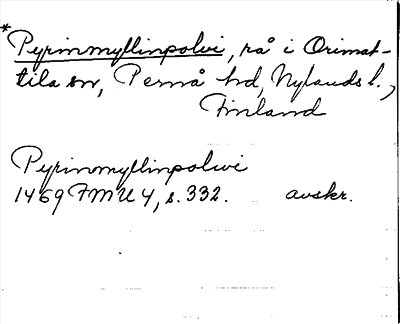 * Pyrinmyllinpolvi, rå i Orimat-
tila sn, Pernå hd, Nylands l.,
Finland
Pyrinmyllinpolwi
1469 FMU 4, s. 332. avskr.